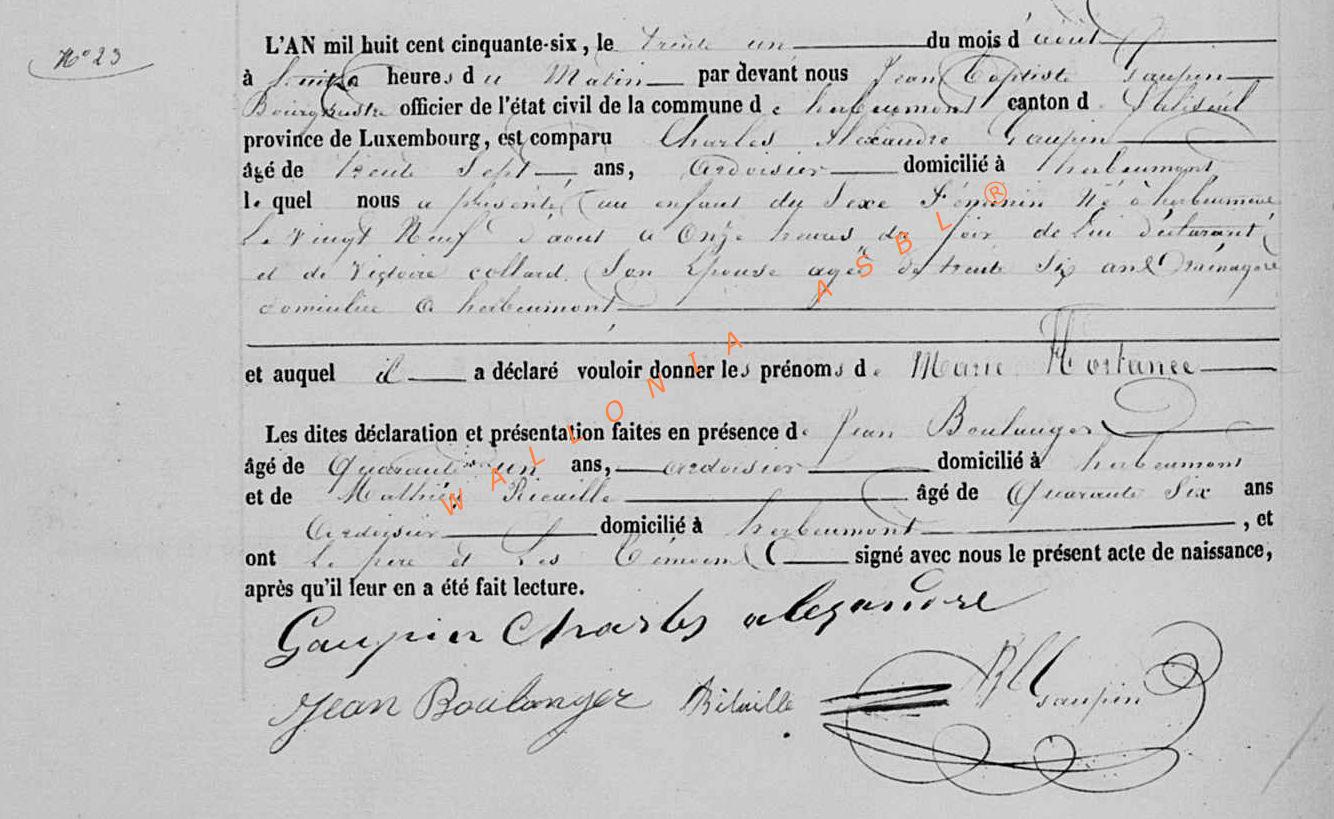 N° 23
L'AN mil huit cent cinquante-six, le trente un du mois d'août
à heures du Matin par devant nous Jean Baptiste Gaupin
Bourgmestre officier de l'état civil de la commune de herbeumont canton d
province de Luxembourg, est comparu Charles Alexandre Gaupin
âgé de trente Sept ans, ardoisier domicilié à herbeumont
lequel nous a présenté un enfant du Sexe Féminin Né à herbeumont
Le Vingt Neuf d'aout a Onze heures du soir de Lui déclarant
et de Victoire collard Son Epouse agée de trente Six ans Ménagère
domiciliée a herbeumont
et auquel il a déclaré vouloir donner les prénoms de Marie Hortance
Les dites déclaration et présentation faites en présence de Jean Boulanger
âgé de Quarante un ans, ardoisier domicilié à herbeumont
et de Mathieu âgé de Quarante Six ans
Ardoisier domicilié à herbeumont, et
ont Le père et Les témoins signé avec nous le présent acte de naissance,
après qu'il leur en a été fait lecture.
Gaupin Charles alexandre
Jean Boulanger
Gaupin
WALLONIA ASBL ®